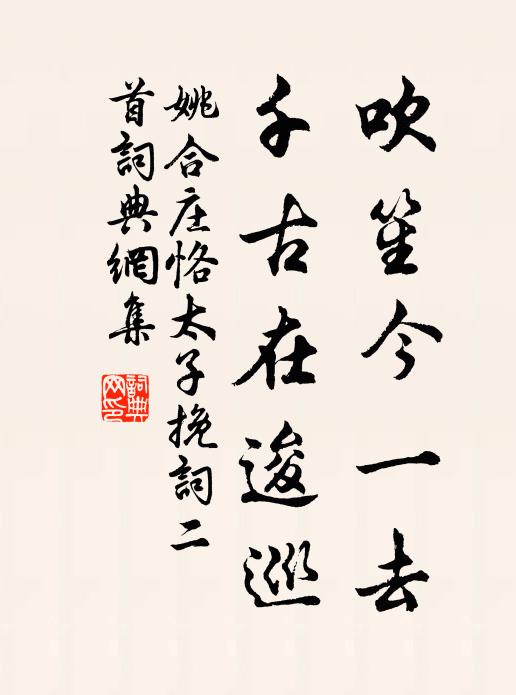 吹笙今一去
千古在逡巡
姚合庄恪太子挽詞二
首詞典網集
詞典
网印